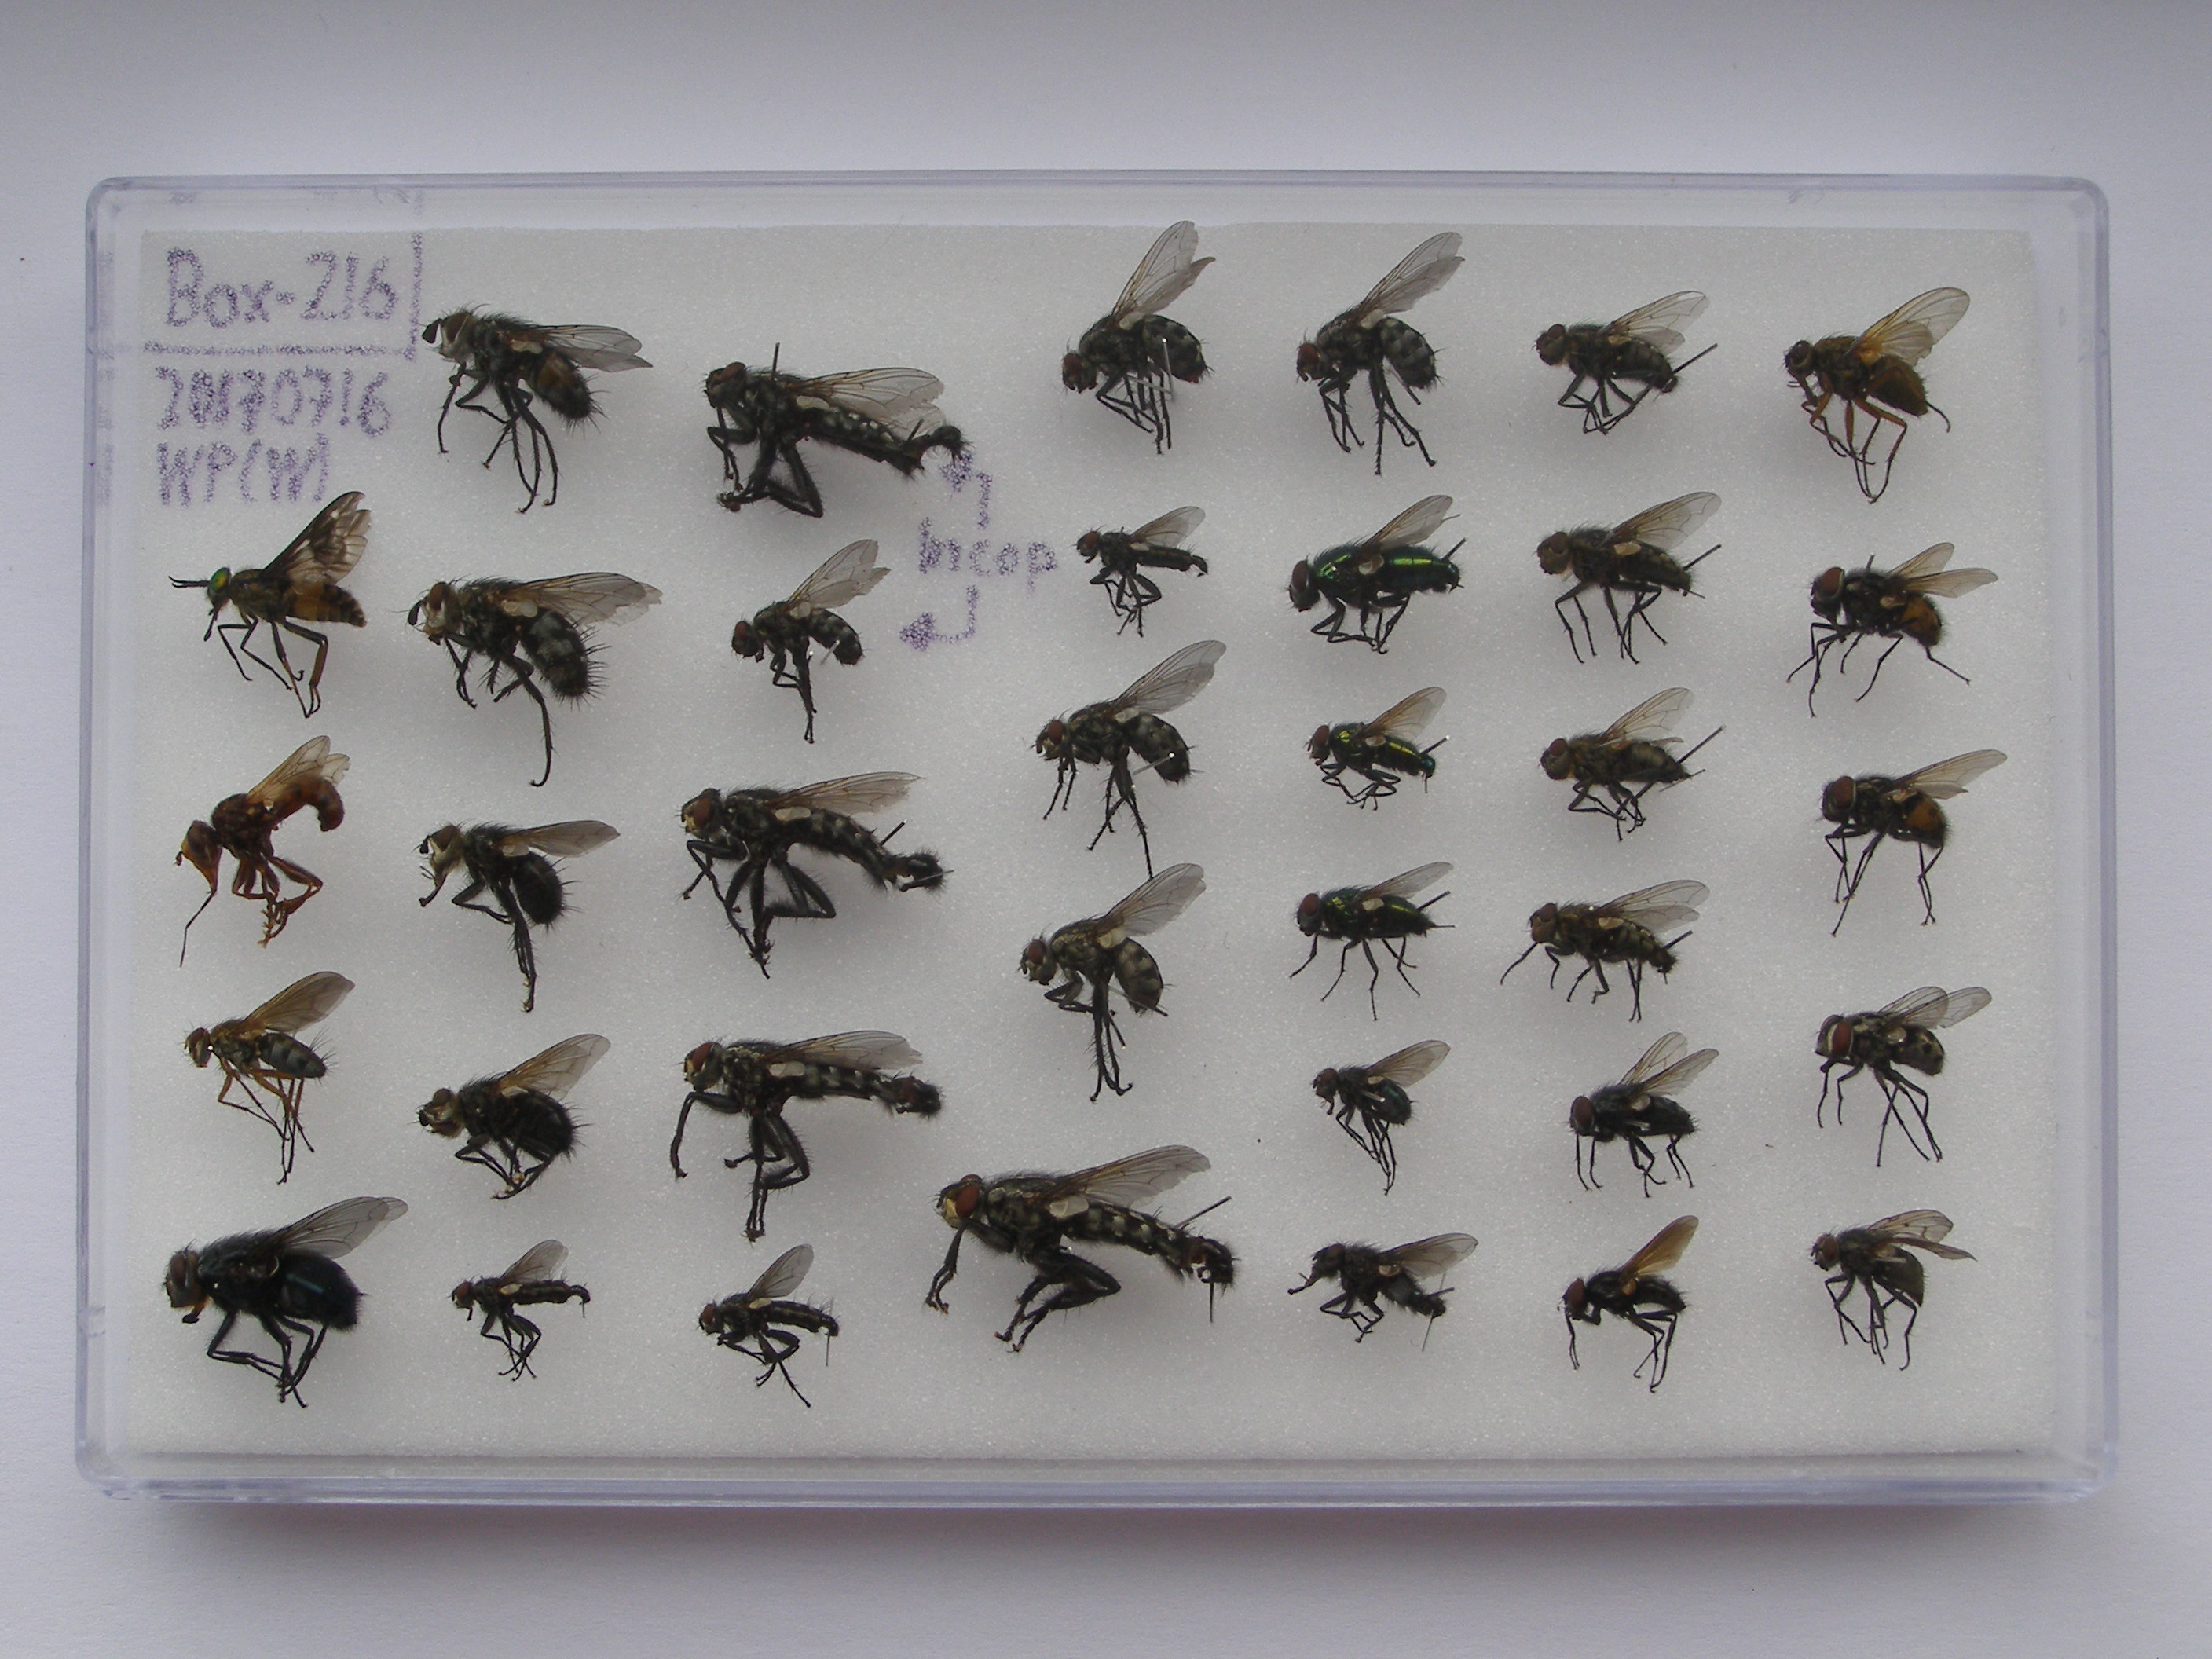 Box-216
20170716
WP(W)
incop